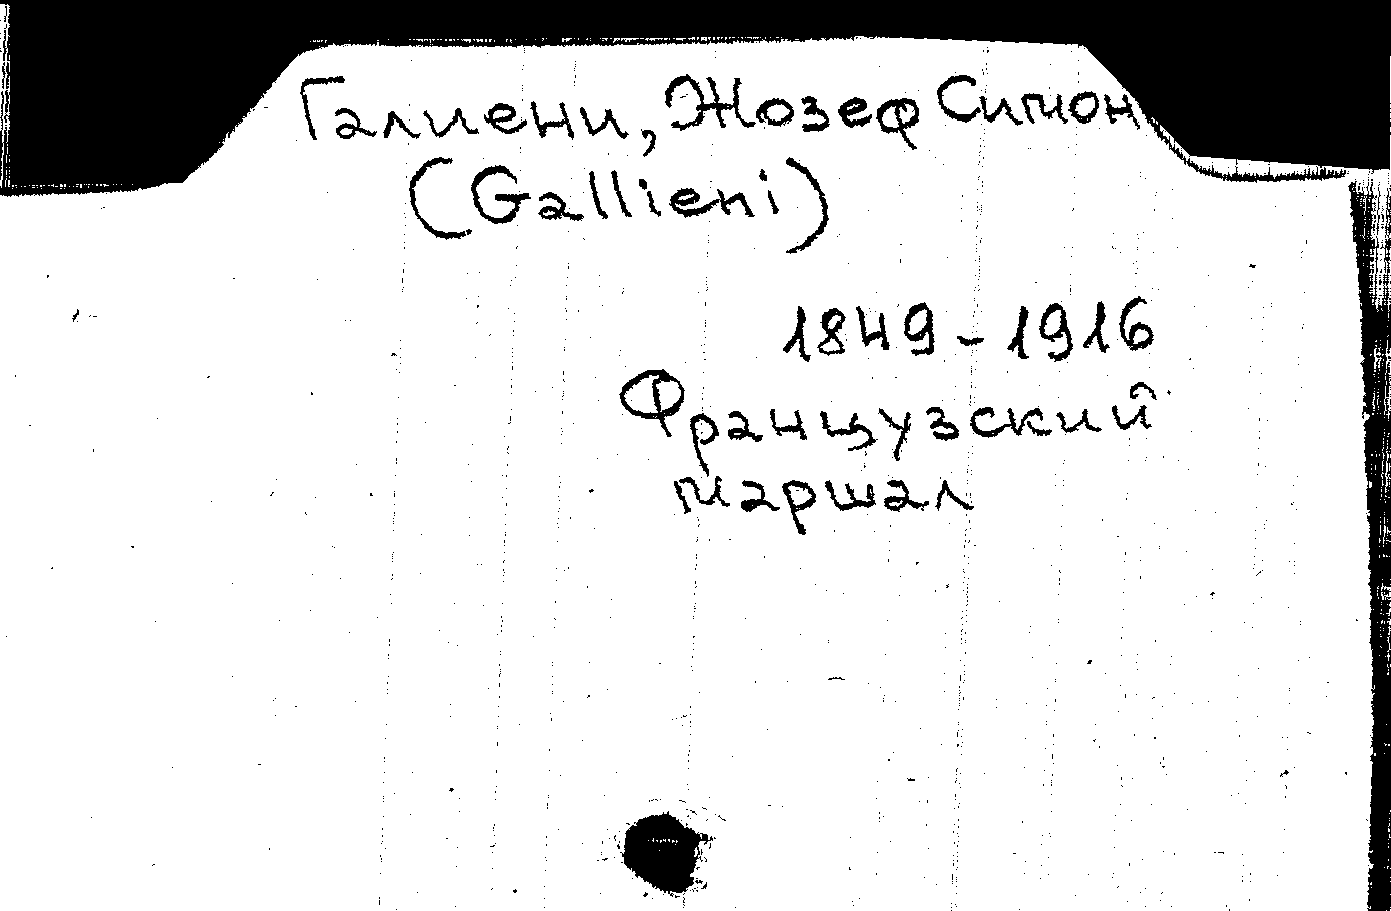 Галиени, Жозеф Симон
(Gallieni)
1849-1916
Французский
маршал